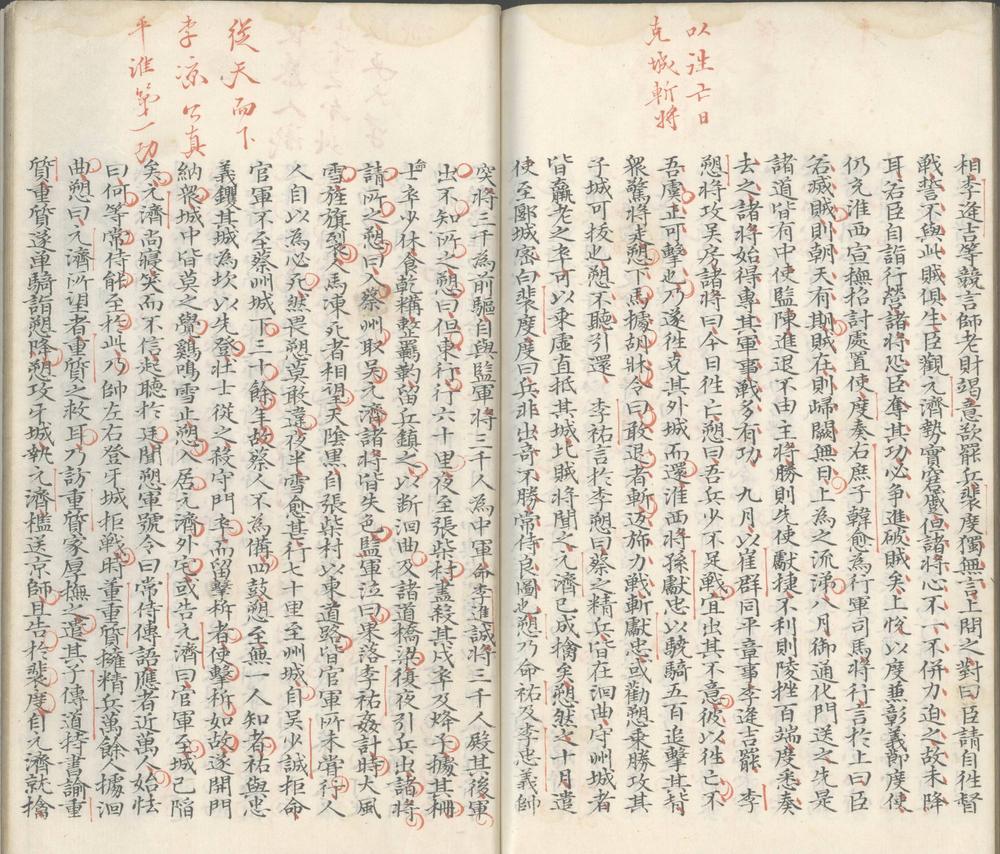 以往亡日
克城斬將
相李逢吉等競言師老財竭意欲罷兵裴度獨無言上問之對曰臣請自往督
戰誓不與此賊俱生臣觀元濟勢實窘蹙但諸將心不一不併力迫之故未降
耳若臣自詣行營諸將恐臣奪其功必爭進破賊矣上悅以度兼彰義節度使
仍充淮西宣撫招討處置使度奏右庶子韓愈為行軍司馬將行言於上曰臣
若滅賊則朝天有期賊在則歸闕無日上為之流涕八月御通化門送之先是
諸道皆有中使監陳進退不由主將勝則先使獻捷不利則陵挫百端度悉奏
去之諸將始得專其軍事戰多有功 九月以崔群同平章事李逢吉罷 李
愬將攻吳房諸將曰今日往亡愬曰吾兵少不足戰宜出其不意彼以往亡不
吾虞正可擊也乃遂往克其外城而還淮西將孫獻忠以驍騎五百追擊其背
衆驚將走愬下馬據胡牀令曰敢退者斬返旆力戰斬獻忠或勸愬乘勝攻其
子城可拔也愬不聽引還 李祐言於李愬曰蔡之精兵皆在洄曲守州城者
皆羸老之卒可以乘虛直抵其城比賊將聞之元濟已成擒矣愬然之十月遣
使至郾城密白裴度度曰兵非出奇不勝常侍良圖也愬乃命祐及李忠義帥
從天而下
李涼公真
平淮第一功
突將三千為前驅自與監軍將三千人為中軍命李進誠將三千人殿其後軍
出不知所之愬曰但東行行六十里夜至張柴村盡殺其戍卒及烽子據其柵
命士卒少休食乾糒整羈靮留兵鎮之以斷洄曲及諸道橋梁復夜引兵出諸將
請所之愬曰入蔡州取吳元濟諸將皆失色監軍泣曰果落李祐姦計時大風
雪旌旗裂人馬凍死者相望天陰黑自張柴村以東道路皆官軍所未嘗行人
人自以為必死然畏愬莫敢違夜半雪愈甚行七十里至州城自吳少誠拒命
官軍不至蔡州城下三十餘年故蔡人不為備四鼓愬至無一人知者祐與忠
義钁其城為坎以先登壯士從之殺守門卒而留擊柝者使擊柝如故遂開門
納衆城中皆莫之覺鷄鳴雪止愬入居元濟外宅或告元濟曰官軍至城已陷
矣元濟尚寢笑而不信起聽於廷聞愬軍號令曰常侍傳語應者近萬人始怯
曰何等常侍能至於此乃帥左右登牙城拒戰時董重質擁精兵萬餘人據洄
曲愬曰元濟所望者重質之救耳乃訪重質家厚撫之遣其子傳道持書諭重
質重質遂單騎詣愬降愬攻牙城執元濟檻送京師且告於裴度自元濟就擒